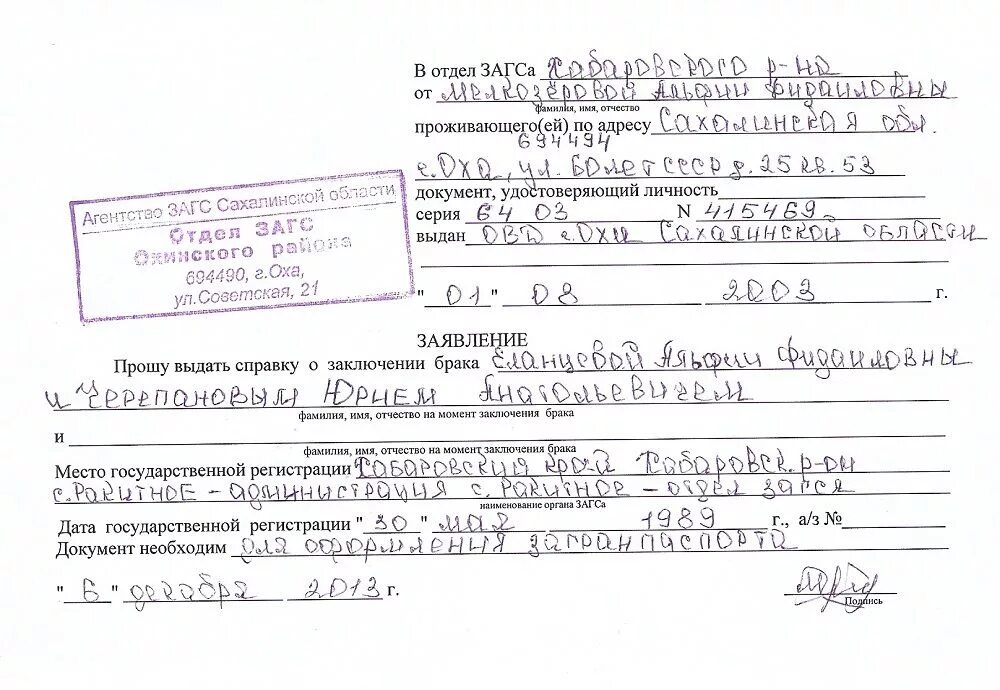 В отдел ЗАГСа Хабаровского р-на
от Мелкозёровой Альфии Фидаиловны
фамилия, имя, отчество
проживающего(ей) по адресу Сахалинская обл.
694494
г.Оха, ул. 60 лет СССР д. 25 кв. 53
документ, удостоверяющий личность
серия 64 03 N 415469
выдан ОВД г.Охи Сахалинской области
"01" 08 2003 г.
Агентство ЗАГС Сахалинской области
Отдел ЗАГС
Охинского района
694490, г.Оха,
ул.Советская, 21
ЗАЯВЛЕНИЕ
Прошу выдать справку о заключении брака Еланцевой Альфии Фидаиловны
и Черепановым Юрием Анатольевичем
фамилия, имя, отчество на момент заключения брака
и
фамилия, имя, отчество на момент заключения брака
Место государственной регистрации Хабаровский край Хабаровск. р-он
с.Ракитное - администрация с. Ракитное - отдел загса
наименование органа ЗАГСа
Дата государственной регистрации "30" мая 1989 г., а/з №
Документ необходим для оформления загранпаспорта
"6" декабря 2013 г.
Подпись